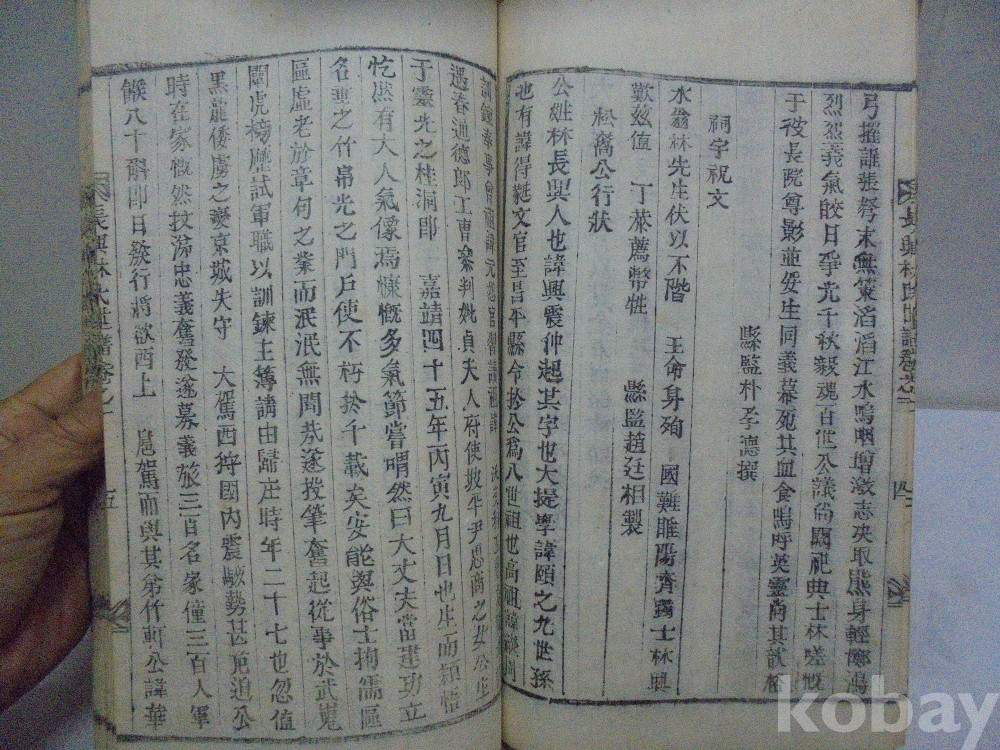 弓摧誰張弩末無策滔滔江水嗚咽增激志決取熊身輕鄉鴻
烈烈義氣皎日爭光千秋毅魂百世公議尙闕祀典士林嗟慨
于彼長院尊影並妥生同義幕死共血食嗚呼英靈尙其歆格
縣監朴孝德撰
祠宇祝文
水翁林先生伏以不階 王命身殉 國難睢陽齊躅士林興
歎玆值 丁 薦幣牲 縣監趙廷相製
松齋公行狀
公姓林長興人也諱興震仲起其字也大提學諱頤之九世孫
也有諱得 文官至昌平縣令於公爲八世祖也高祖諱
訓鍊奉事曾祖諱 官
遇春通德郎工曹參判妣貞夫人府使坡平尹思商之女公生
于靈光之桂洞卽 嘉靖四十五年丙寅九月日也生而穎悟
屹然有大人氣像焉慷慨多氣節嘗喟然曰大丈夫當建功立
名垂之竹帛光之門戶使不朽於千載矣安能與俗士拘儒區
區虛老於章句之業而泯泯無聞哉遂投筆奮起從事於武嵬
關虎榜歷試軍職以訓鍊主簿請由歸庄時年二十七也忽值
黑龍倭虜之變京城失守 大駕西狩國內震 勢甚危迫公
時在家慨然扙淚忠義奮發遂募義旅三百名家僮三百人軍
餱八十斛卽日發行將欲西上 扈駕而與其弟竹軒公諱華
長興林氏世譜卷之一
四
長興林氏世譜卷之一
五
kobay